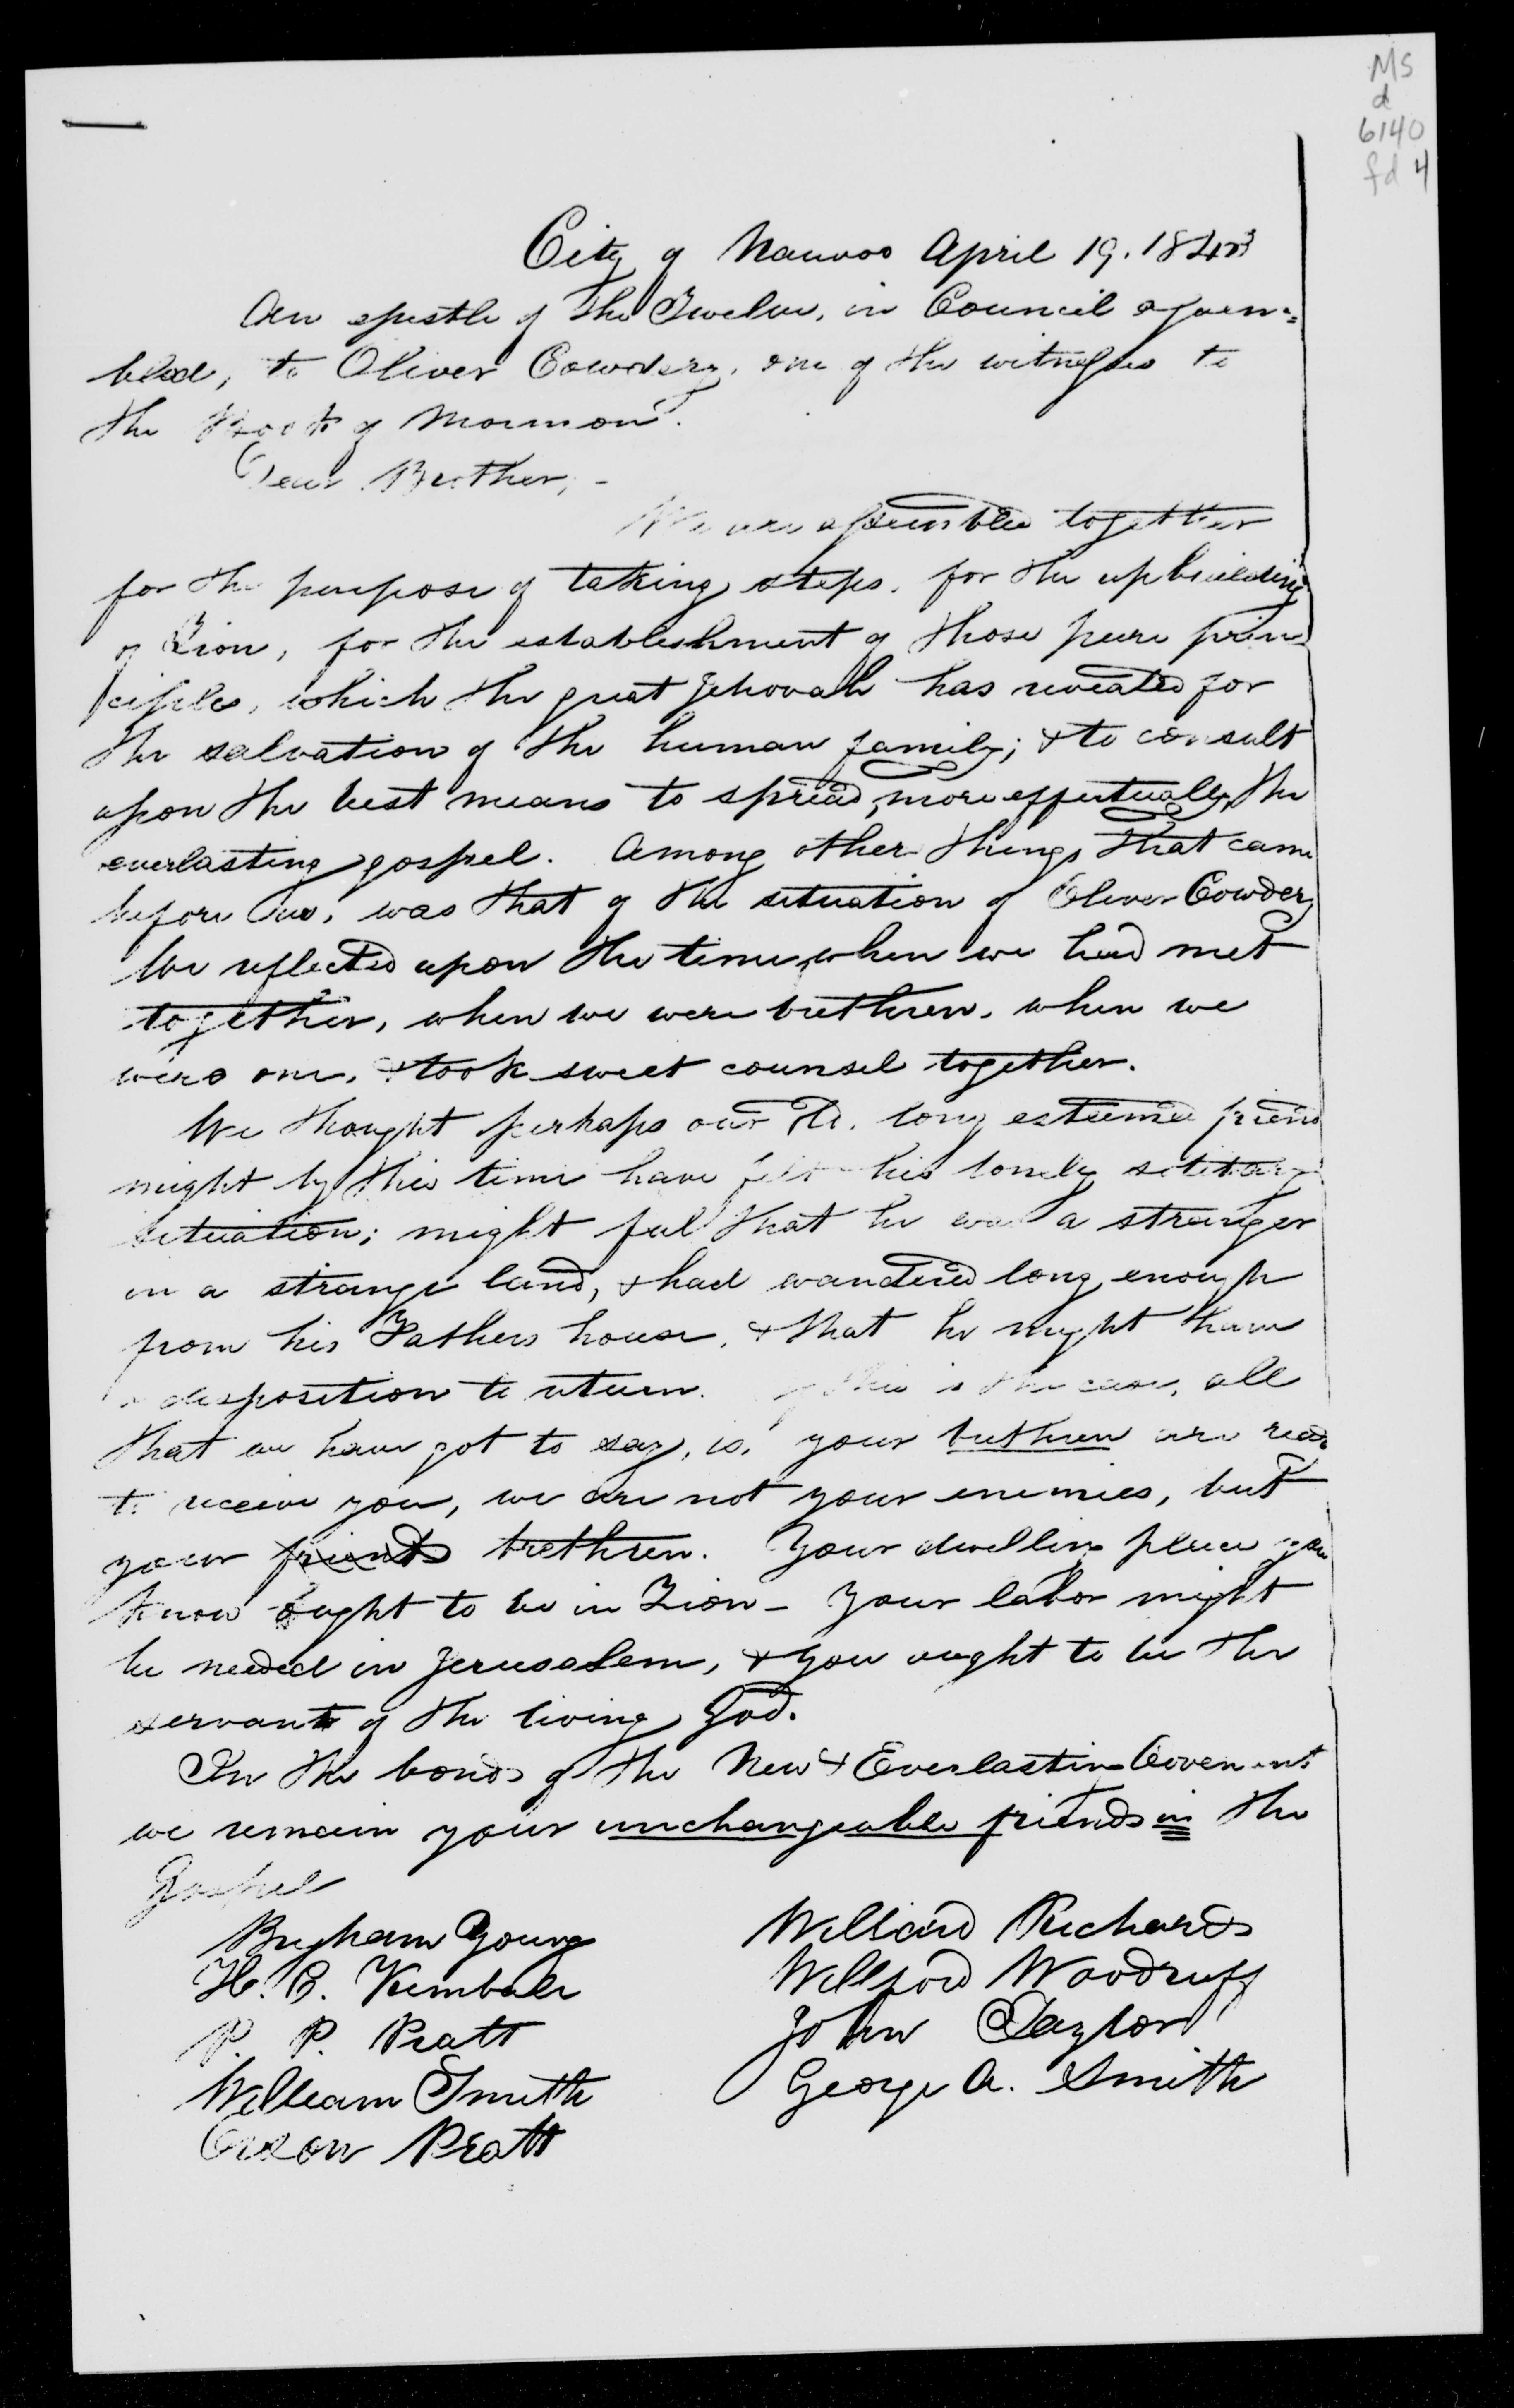 MS
d
6140
fd 4
City of Nauvoo April 19. 1843
An epistle of the Twelve, in Council assem=
bled, to Oliver Cowdery, one of the witnesses to
the Book of Mormon.
Dear Brother, -
We are assembled together
for the purpose of taking steps, for the upbuilding
of Zion, for the establishment of those pure prin
ciples, which the great Jehovah has revealed for
the salvation of the human family; & to consult
upon the best means to spread, more effectually, the
everlasting gospel. Among other things that came
before us, was that of the situation of Oliver Cowdery
We reflected upon the time, when we had met
together, when we were brethren, when we
were one, & took sweet counsel together.
We thought perhaps our old, long esteemed friend
might by this time have felt his lonely, solitary
situation; might feel that he was a stranger
in a strange land, & had wandered long enough
from his Fathers house, & that he might have
a disposition to return. If this is the case, all
that we have got to say, is, your brethren are ready
to receive you, we are not your enemies, but
your friends brethren. Your dwelling place you
know ought to be in Zion - Your labor might
be needed in Jerusalem, & you ought to be the
servant of the living God.
In the bonds of the New & Everlasting Covenant
we remain your unchangeable friends in the
Gospel
Brigham Young
H. C. Kimball
P. P. Pratt
William Smith
Orson Pratt
Willard Richards
Wilford Woodruff
John Taylor
George A. Smith